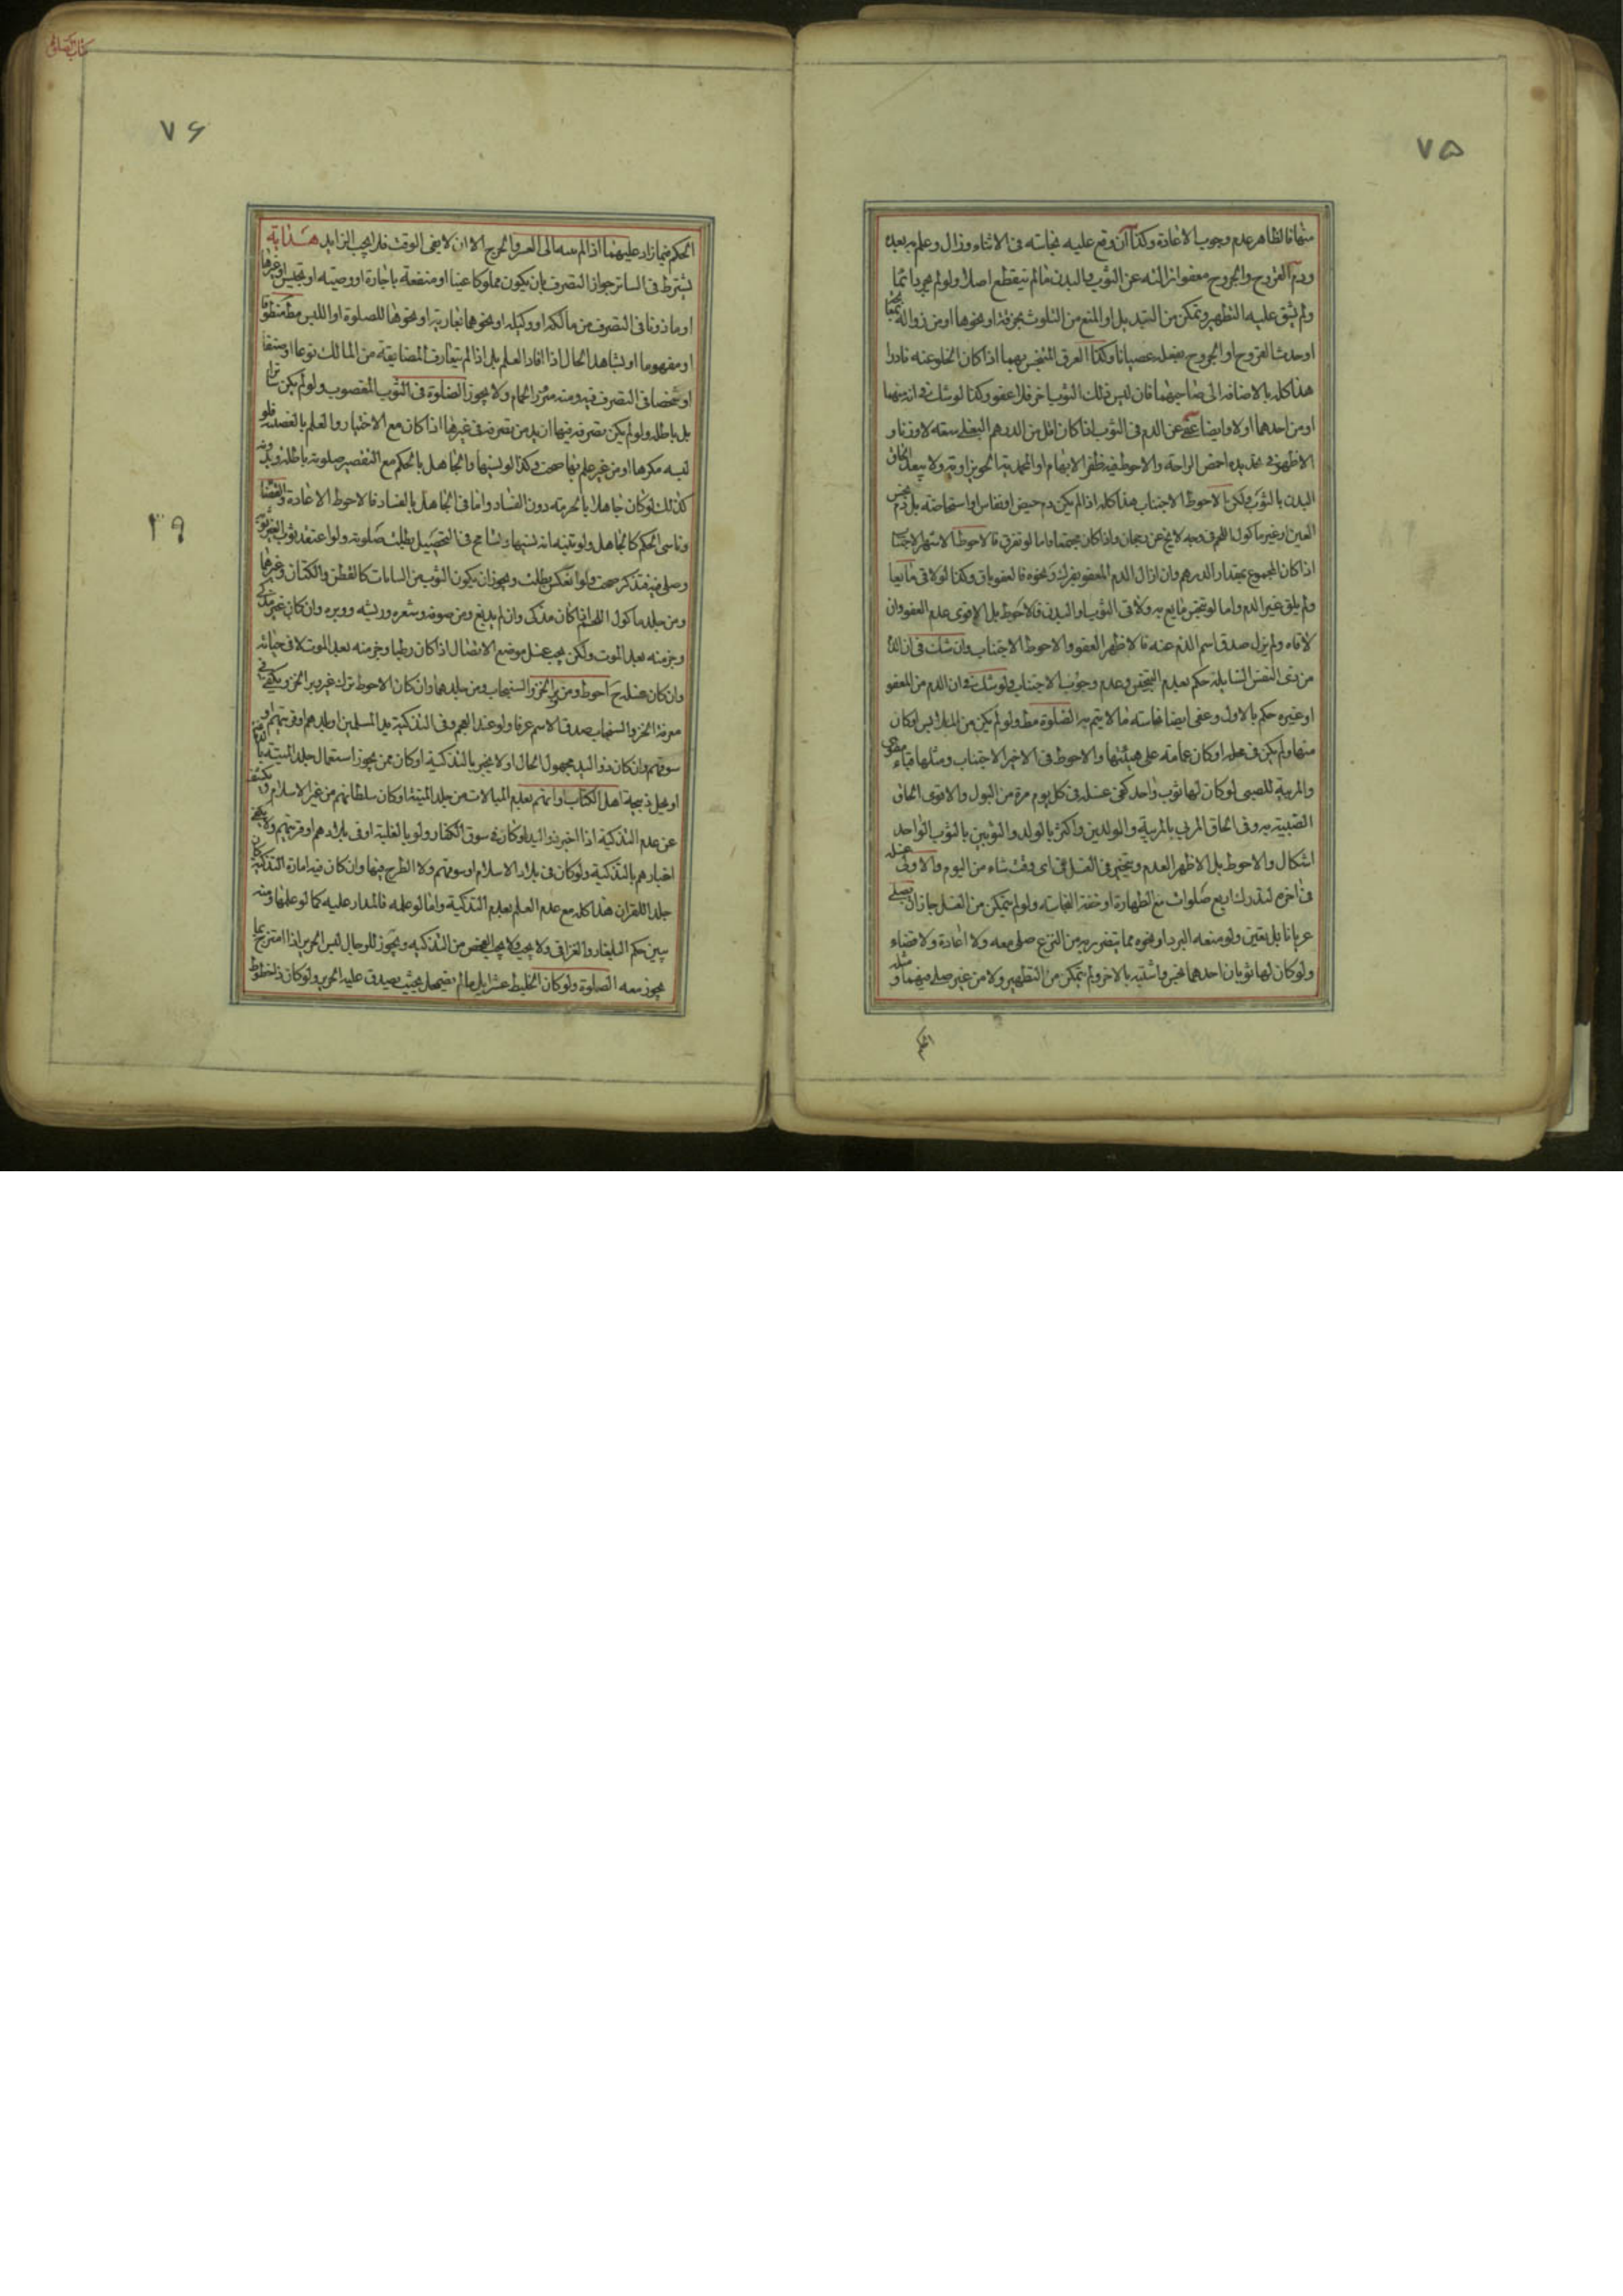 ٧٥
منها فالظاهر عدم وجوب الاعادة وكذا ان وقع عليه نجاسته فى الاثناء وزال وعلم به بعده
ودم القروح والجروح معفو ازالته عن الثوب والبدن مالم ينقطع اصلا ولو لم يجر دائما
ولم يشق عليه التطهير وتمكن من التبديل او المنع من التلوث بخرقة او نحوها او من زواله
او حدث القروح او الجروح بفعله عصيانا وكذا العرق المتنجس بهما اذا كان الخلو عنه نادرا
هذا كله بالاضافة الى صاحبهما فان لبس ذلك الثوب اخر فلا عفو وكذا لو شك فى انه منهما
او من احدهما اولا وايضا عفى عن الدم فى الثوب اذا كان اقل من الدرهم البغلى سعة لا وزنا و
الاظهر فى تحديده اخمص الراحة والاحوط فيه ظفر الابهام او المحمدية الحويزاوية ولا يبعد الحاق
البدن بالثوب ولكن الاحوط الاجتناب هذا كله اذا لم يكن دم حيض او نفاس او استحاضة بل دم نجس
العين او غير ماكول اللحم وفيه لا يخ عن رجحان واذا كان مجتمعا واما لو تفرق فالاحوط الاشهر الاجتناب
اذا كان المجموع بمقدار الدرهم وان ازال الدم المعفو بفرك ونحوه فالعفو باق وكذا لو لاقى مايعا
ولم يلق غير الدم واما لو تنجس مايع به ولاقى الثوب او البدن فالاحوط بل الاقوى عدم العفو وان
لاقاه ولم يزل صدق اسم الدم عنه فالاظهر العفو والاحوط الاجتناب وان شك فى ان الدم
من ذى النفس السايلة حكم بعدم التنجس وعدم وجوب الاجتناب ولو شك فى ان الدم من المعفو
او غيره حكم بالاول وعفى ايضا نجاسة ما لا يتم به الصلوة مط ولو لم يكن من الملابس او كان
منها ولم يكن فى محله او كان عمامة على هيئتها والاحوط فى الاخير الاجتناب ومثلها قباء
والمربية للصبى لو كان لها ثوب واحد كفى غسله فى كل يوم مرة من البول والاقوى الحاق
الصبية به وفى الحاق المربى بالمربية والولدين واكثر بالولد والثوبين بالثوب الواحد
اشكال والاحوط بل الاظهر العدم ويتخير فى الغسل فى اى وقت شاء من اليوم والاولى غسله
فى اخره لتدرك اربع صلوات مع الطهارة او خفة النجاسة ولو لم يتمكن من الغسل جاز ان يصلى
عريانا بل تعين ولو منعه البرد او نحوه مما يتضرر به من النزع صلى معه ولا اعادة ولا قضاء
ولو كان لها ثوبان احدهما نجس واشتبه بالاخر ولم يتمكن من التطهير ولا من غير صلى فيهما و مثله
الحكم
كتاب الصلوة
٧۶
٣٩
الحكم فيما زاد عليهما اذا لم ينته الى العسر والحرج الا ان لا يفى الوقت فلا يجب الزايد هداية
يشترط فى الساتر جواز التصرف بان يكون مملوكا عينا او منفعة باجارة او وصيته او تحبيس او غيرها
او ماذونا فى التصرف من مالكه او وكيله او نحوهما بعارية او نحوها للصلوة او اللبس مط منطوقا
او مفهوما او بشاهد الحال اذا افاد العلم بل اذا لم يتعارف المضايقة من المالك نوعا او صنفا
او شخصا فى التصرف فيه ومنه مئزر الحمام ولا يجوز الصلوة فى الثوب المغصوب ولو لم يكن ساترا
بل باطلة ولو لم يكن تصرفه فيها ازيد من تصرفه فى غيرها اذا كان مع الاختيار والعلم بالغصب فلو
لبسه مكرها او من غير علم بها صحت وكذا لو نسيها والجاهل بالحكم مع التقصير صلوته باطلة
كذلك لو كان جاهلا بالحرمة دون الفساد واما فى الجاهل بالفساد فالاحوط الاعادة والقضا
وناسى الحكم كالجاهل ولو تنبه انه نسيها وتسامح فى التحصيل بطلت صلوته ولو اعتقد ثوب الغير ثوبه
وصلى فيه فتذكر صحت ولو انعكس بطلت ويجوز ان يكون الثوب من النباتات كالقطن والكتان وغيرها
ومن جلد ماكول اللحم اذا كان مذكى وان لم يدبغ ومن صوفه وشعره وريشه ووبره وان كان غير مذكى
وجز منه بعد الموت ولكن يجب غسل موضع الاتصال اذا كان رطبا وجز منه بعد الموت لا فى حياته
وان كان غسله ح احوط ومن وبر الخز والسنجاب ومن جلدهما وان كان الاحوط ترك غير وبر الخز ويكفى فى
معرفة الخز والسنجاب صدق الاسم عرفا ولو عند العجم وفى التذكية يد المسلمين او بلدهم او قريتهم او
سوقهم وان كان ذو اليد مجهول الحال او لا يخبر بالتذكية او كان ممن يجوز استعمال جلد الميتة
او يحل ذبيحة اهل الكتاب او اتهم بعدم المبالات من جلد الميتة او كان سلطانهم من غير الاسلام و يكشف
عن عدم التذكية اذا اخبر ذو اليد او كان فى سوق الكفار ولو بالغلبة او فى بلادهم او قريتهم ولا يكفى
اخبارهم بالتذكية ولو كان فى بلاد الاسلام او سوقهم ولا الطرح فيها وان كان فيه امارة التذكية
جلد اللقران هذا كله مع عدم العلم بعدم التذكية واما لو علمه فالمدار عليه كما لو علمها ومنه
يبين حكم البلغار والغراقى ولا يجب الفحص من التذكية ويجوز للرجال لبس الحرير اذا امتزج بما
يجوز معه الصلوة ولو كان الخليط عشرا بل مالم يضمحل بحيث يصدق عليه الحرير ولو كان ذا خطوط